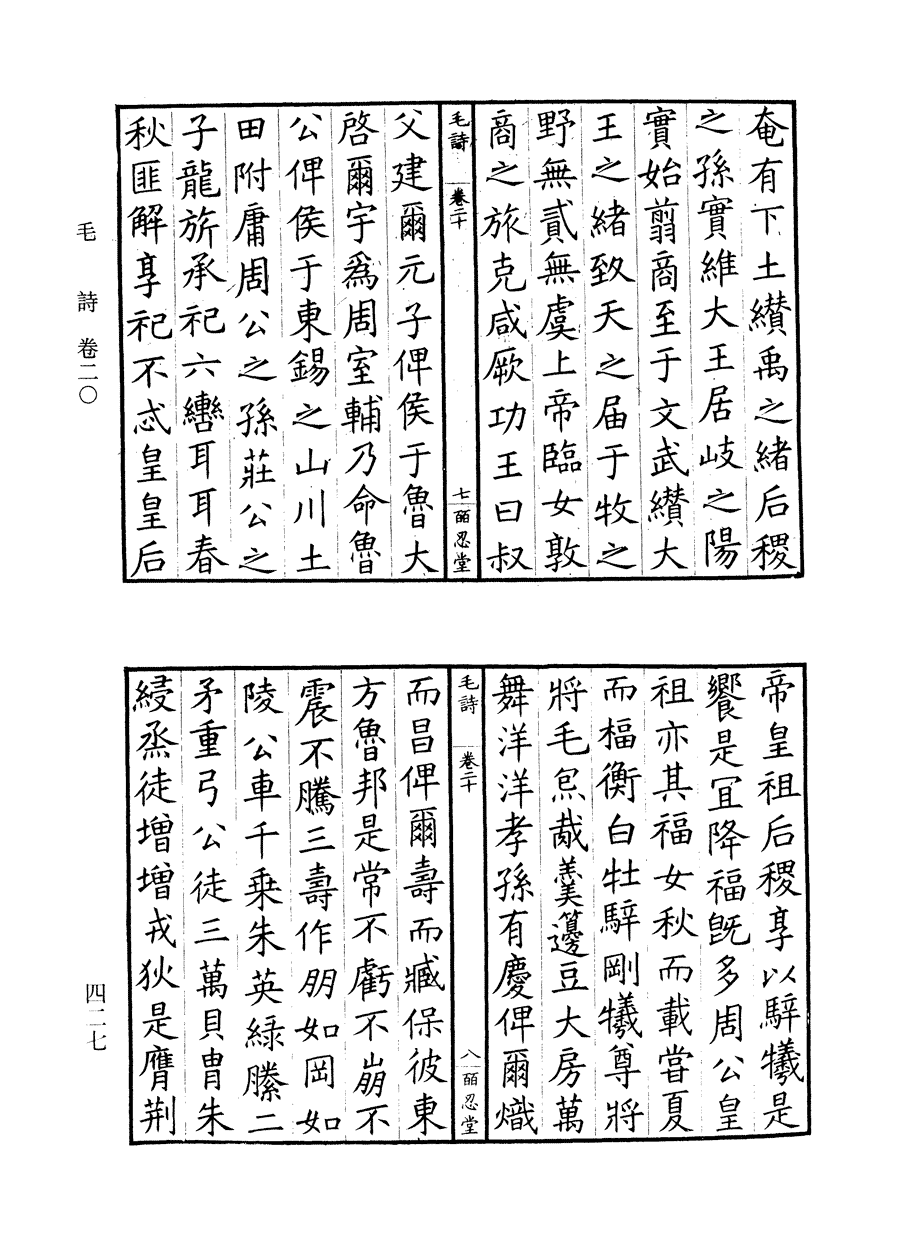 奄有下土纘禹之緒后稷
之孫實維大王居岐之陽
實始翦商至于文武纘大
王之緒致天之届于牧之
野無貳無虞上帝臨女敦
商之旅克咸厥功王曰叔
毛詩 卷二十 七 皕忍堂
父建爾元子俾侯于魯大
啓爾宇爲周室輔乃命魯
公俾侯于東錫之山川土
田附庸周公之孫莊公之
子龍旂承祀六轡耳耳春
秋匪解享祀不忒皇皇后
帝皇祖后稷享以騂犧是
饗是宜降福旣多周公皇
祖亦其福女秋而載甞夏
而楅衡白牡騂剛犧尊將
將毛炰胾羹籩豆大房萬
舞洋洋孝孫有慶俾爾熾
毛詩 卷二十 八 皕忍堂
而昌俾爾壽而臧保彼東
方魯邦是常不虧不崩不
震不騰三壽作朋如岡如
陵公車千乗朱英緑縢二
矛重弓公徒三萬貝胄朱
綅烝徒增增戎狄是膺荆
毛詩 卷二〇
四二七